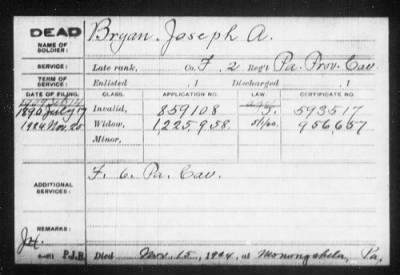 DEAD
NAME OF SOLDIER: Bryan. Joseph A.
SERVICE: Late rank, Co. F, 2 Reg't Pa. Prov. Cav
TERM OF SERVICE: Enlisted , 1 Discharged , 1
DATE OF FILING. CLASS. APPLICATION NO. LAW. CERTIFICATE NO.
1890 July 17 Invalid, 859108 593517
1924 Nov. 20 Widow, 1,225,958. 956,657
Minor,
ADDITIONAL SERVICES: F. 6. Pa. Cav.
REMARKS:
P.J.B. Died Nov. 15, 1924, at Monongahela, Pa.